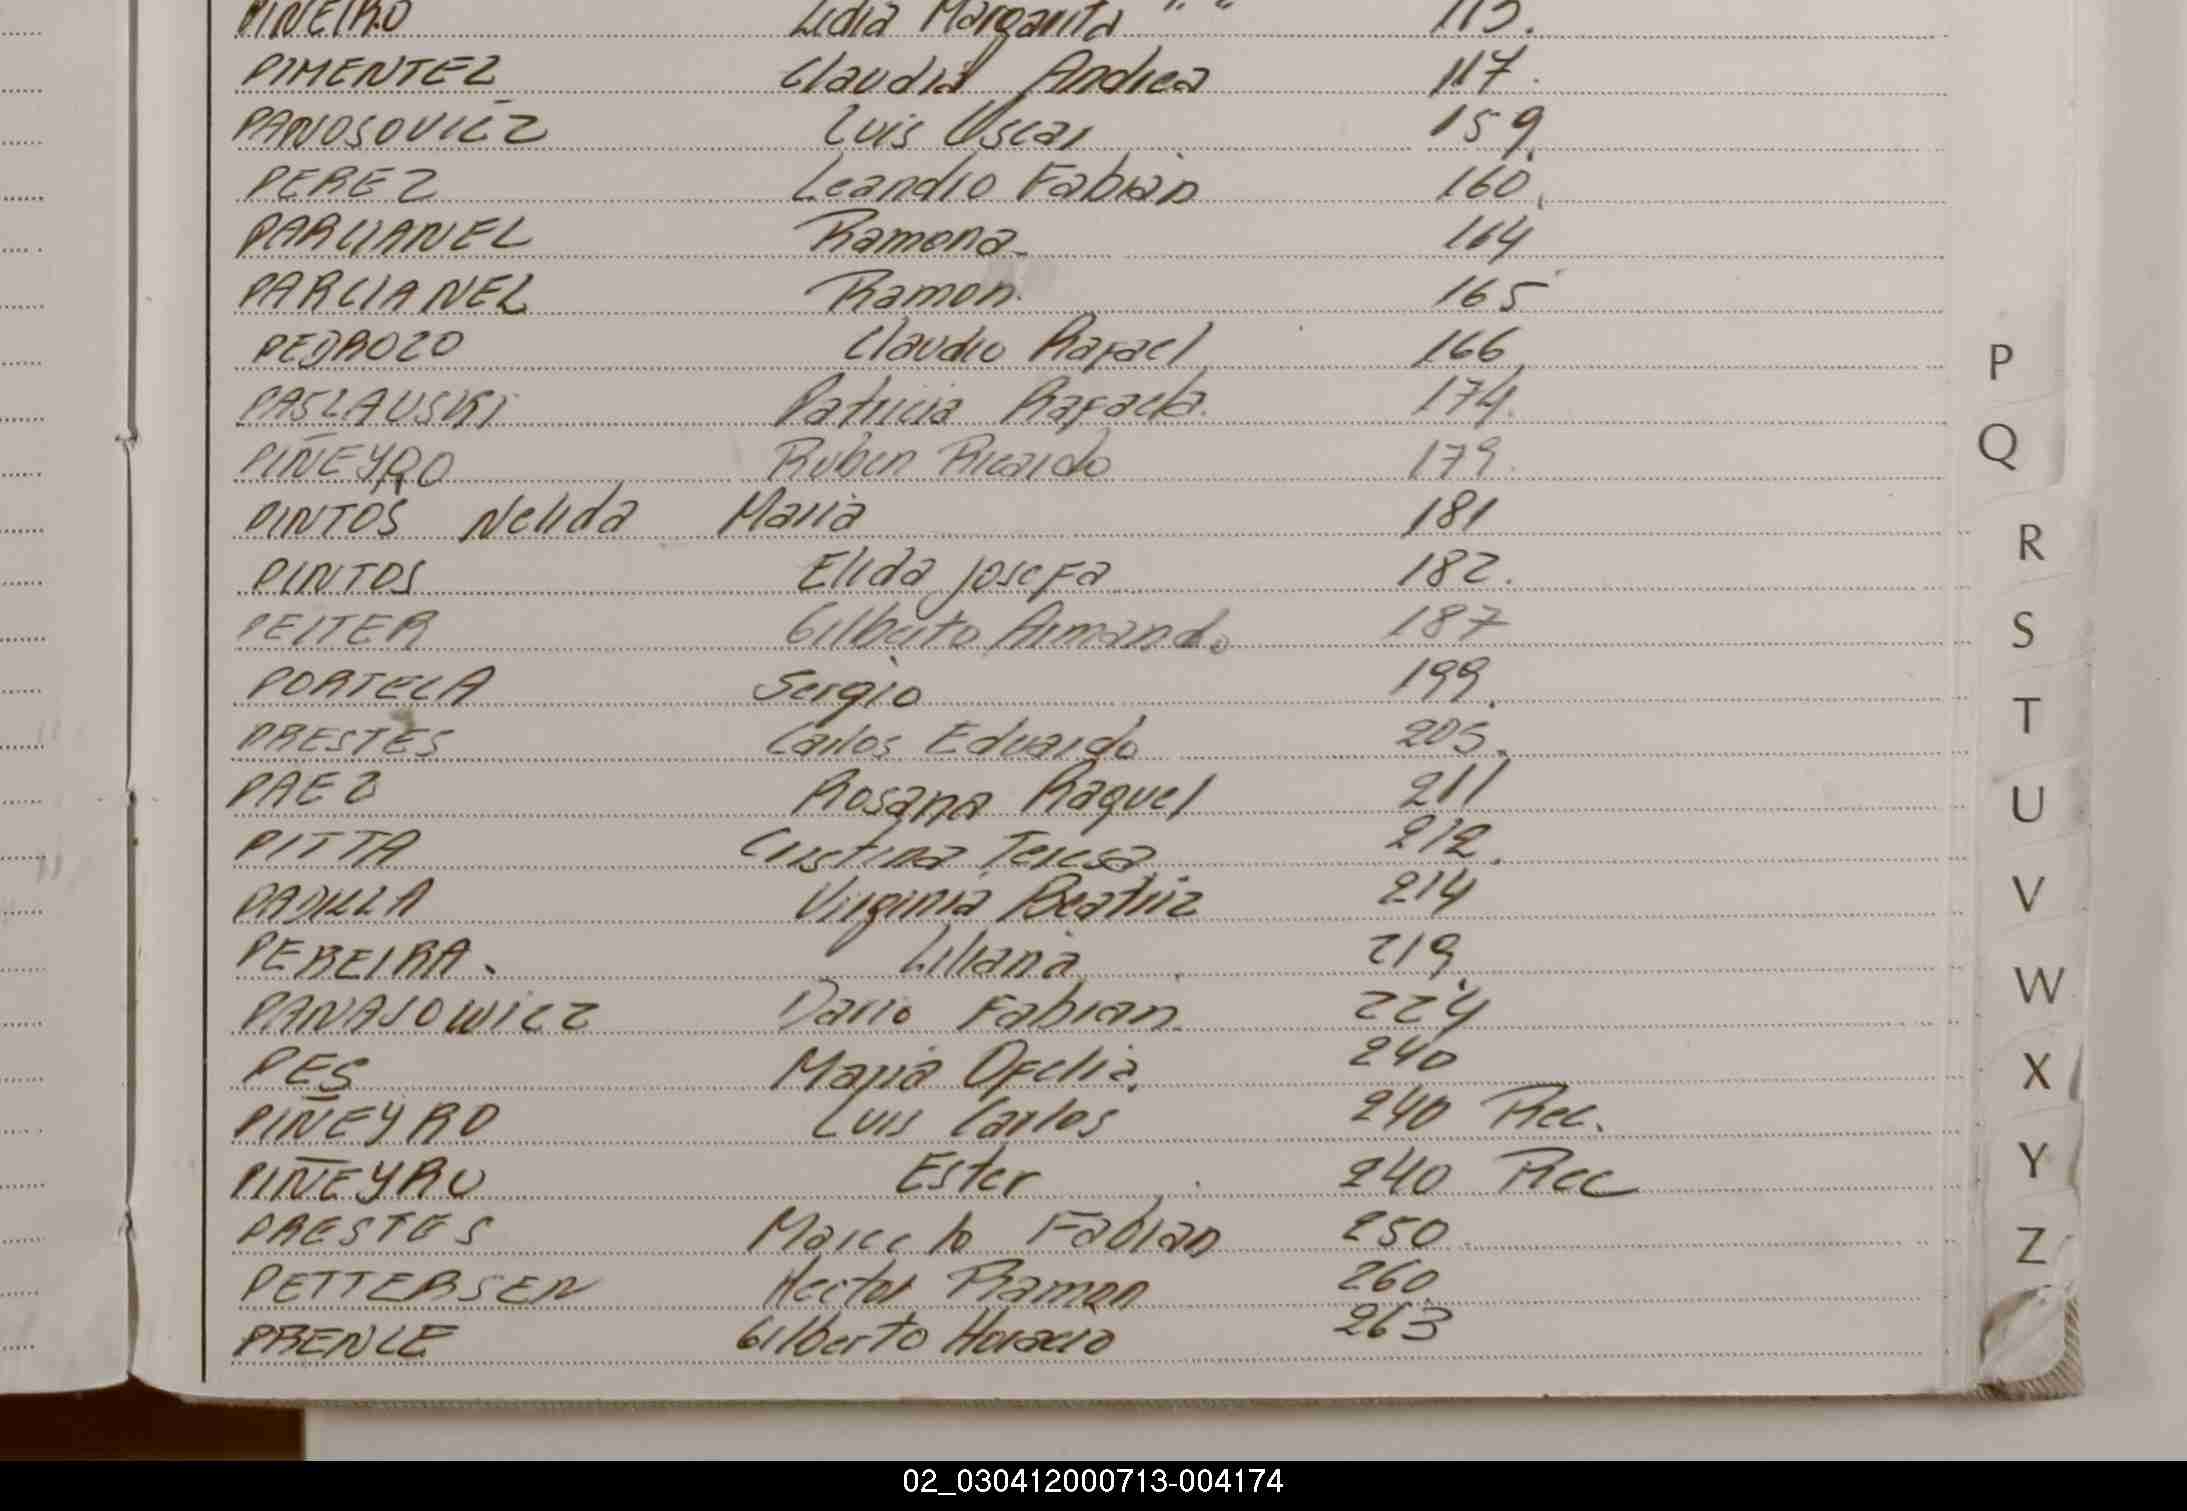 PIÑEIRO Lidia Margarita " " 115.
PIMENTEL Claudia Andrea 117.
PANOSOVICZ Luis Oscar 159.
PEREZ Leandro Fabián 160.
PARCIANEL Ramona 164
PARCIANEL Ramon. 165
PEDROZO Claudio Rafael 166
PASLAUSKI Patricia Rafaela. 174.
PIÑEYRO Ruben Ricardo 179.
PINTOS Nelida Maria 181
PINTOS Elida Josefa 182.
PEITER Gilberto Armando 187
PORTELA Sergio 199.
PRESTES Carlos Eduardo 205.
PAEZ Rosana Raquel 211
PITTA Cristina Teresa 212.
PADILLA Virginia Beatriz 214
PEREIRA. Liliana 219.
PANASOWICZ Dario Fabian. 224
PES Maria Ofelia. 240
PIÑEYRO Luis Carlos 240 Rec.
PIÑEYRO Ester 240 Rec
PRESTES Marcelo Fabian 250
PETTERSEN Hector Ramon 260
PRENCE Gilberto Horacio 263
P
Q
R
S
T
U
V
W
X
Y
Z
02_030412000713-004174